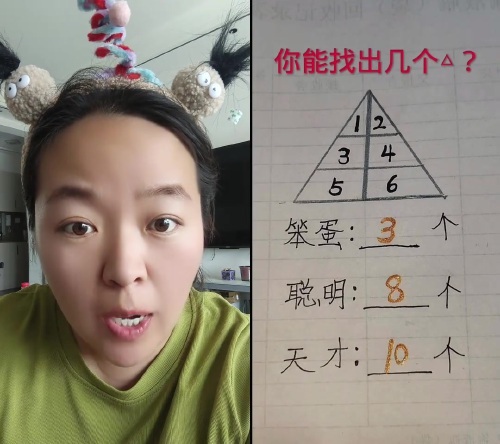 你能找出几个△？
1 2
3 4
5 6
笨蛋: 3 个
聪明: 8 个
天才: 10 个